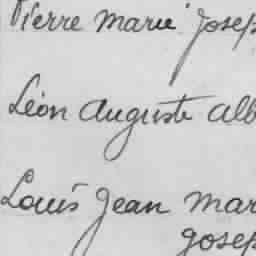 Pierre Marie Josep
Léon Auguste Alb
Louis Jean Mar
Josep